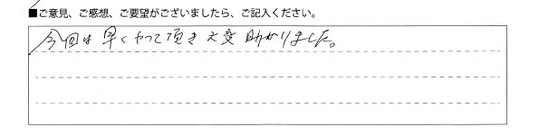 ■ご意見、ご感想、ご要望がございましたら、ご記入ください。
今回は早くやって頂き大変助かりました。